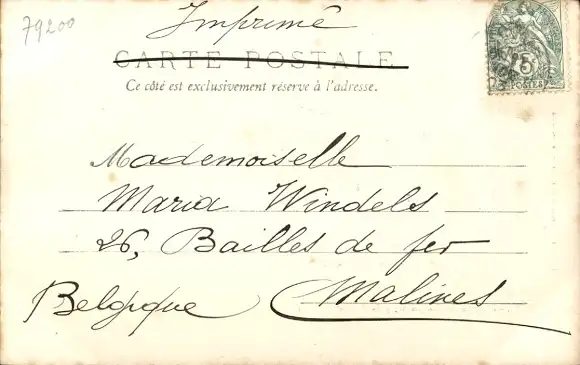 79200
Imprimé
CARTE POSTALE
Ce côté est exclusivement réservé à l'adresse.
5
POSTES
Mademoiselle
Maria Windels
26, Bailles de fer
Belgique Malines